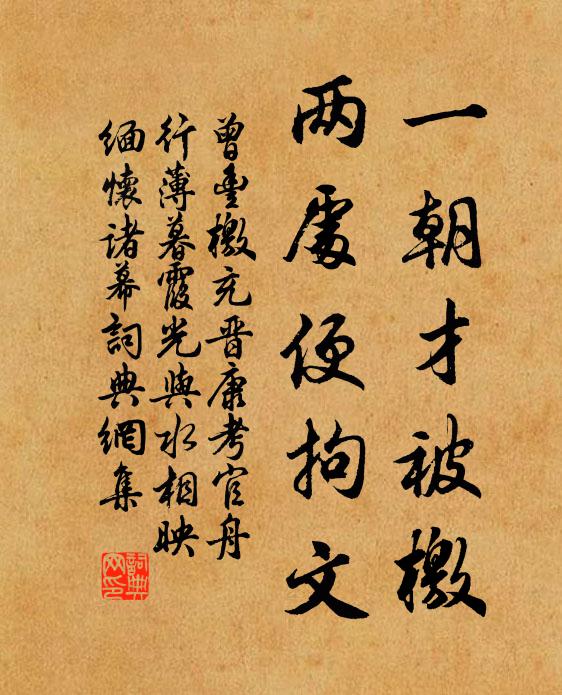 一朝才被檄
两處便拘文
曾豊檄充晋康考官舟
行薄暮霞光與水相映
緬懷诸幕詞典網集
詞典网印